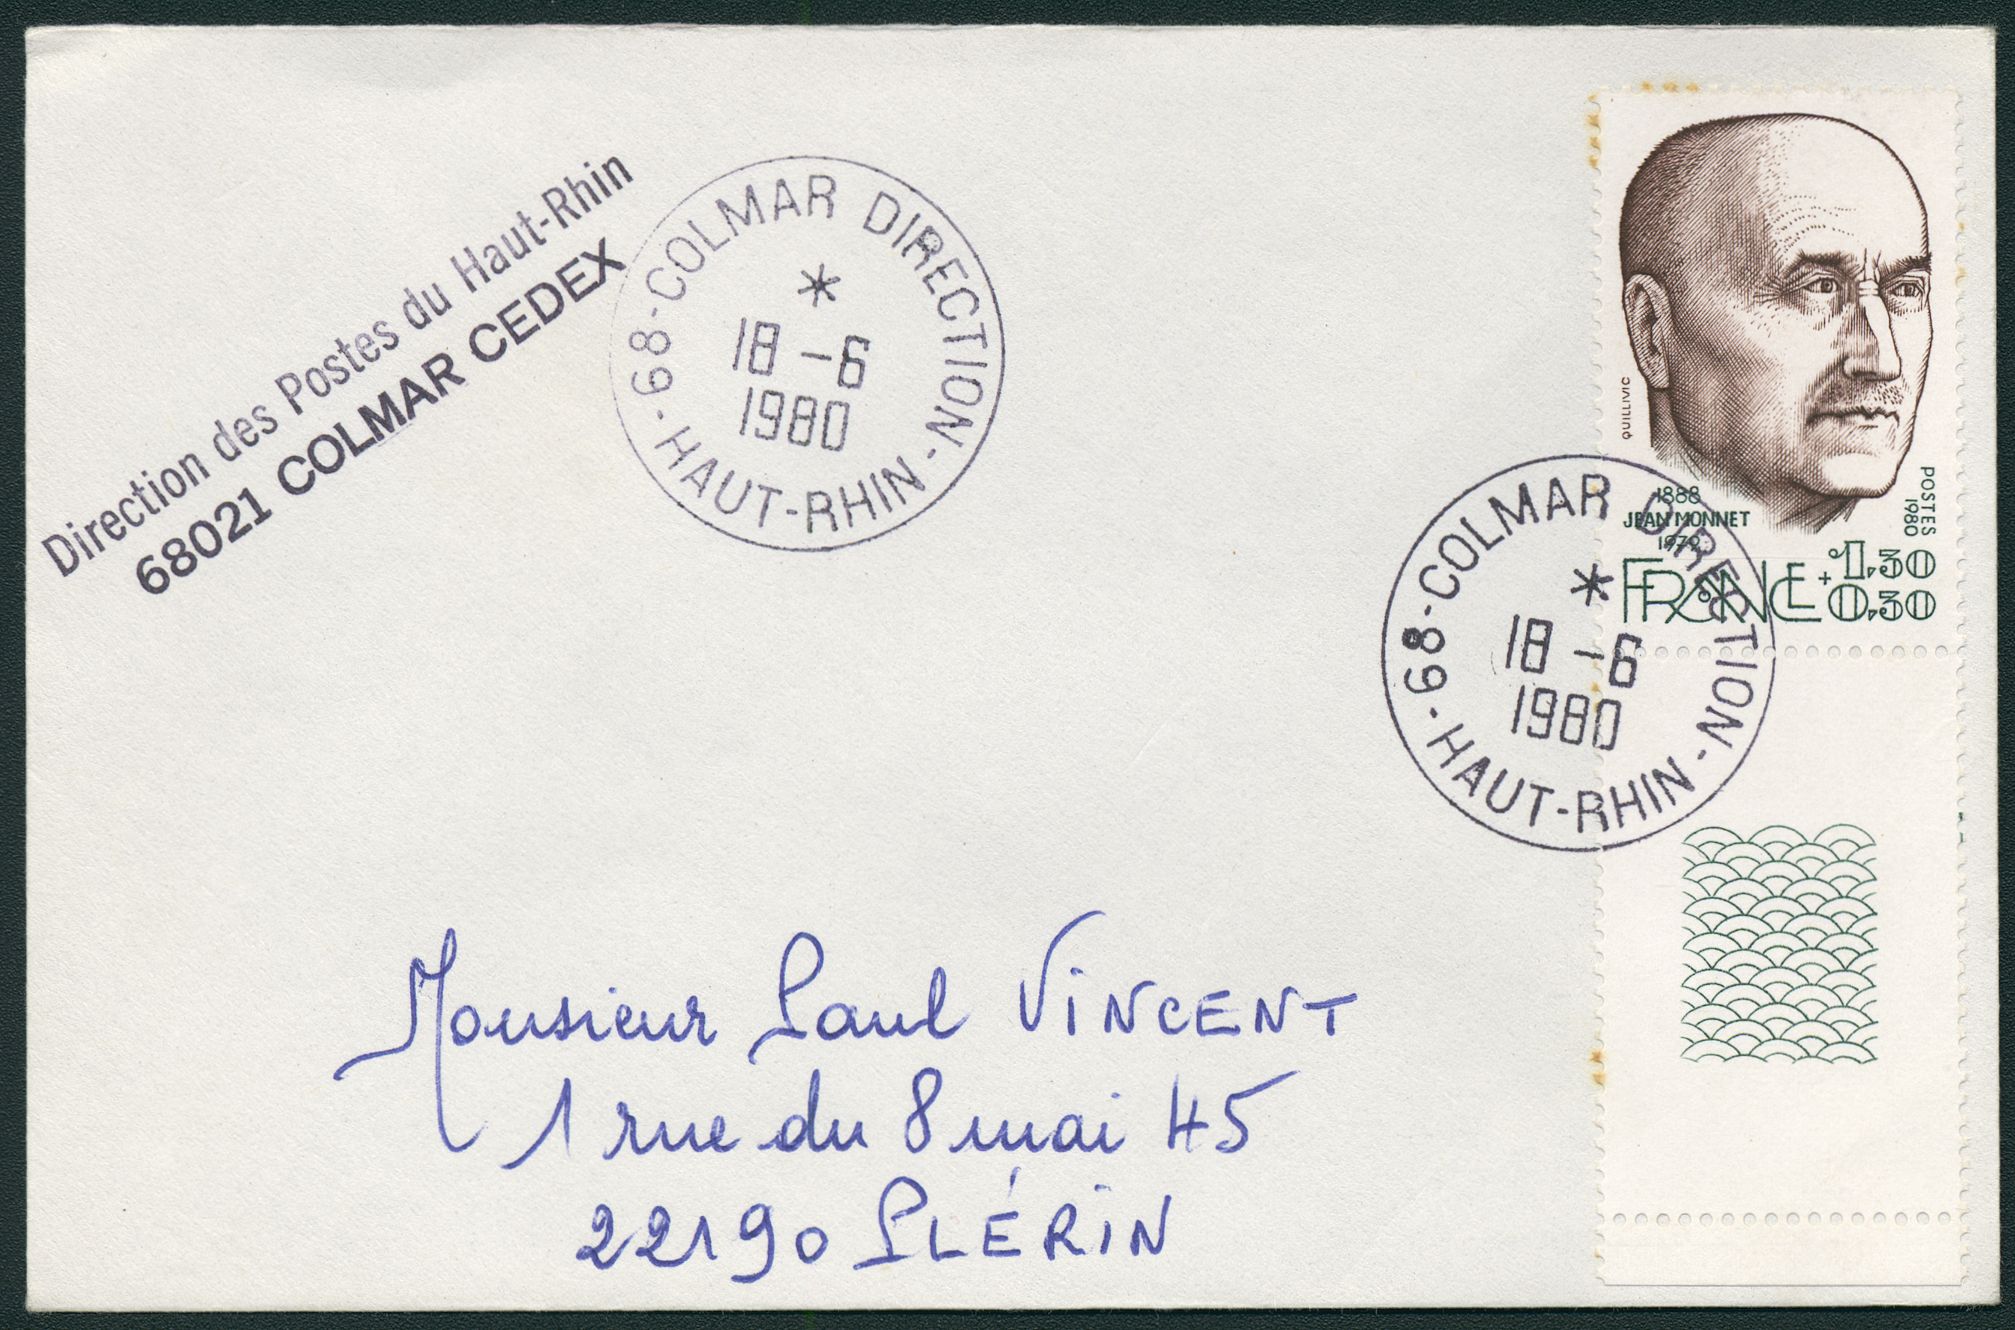 Direction des Postes du Haut-Rhin
68021 COLMAR CEDEX
68-COLMAR DIRECTION
*
18 -6
1980
-HAUT-RHIN-
QUILLIVIC
1888
JEAN MONNET
1979
POSTES
1980
FRANCE +1,30
0,30
68-COLMAR DIRECTION
*
18 -6
1980
-HAUT-RHIN-
Monsieur Paul VINCENT
1 rue du 8 mai 45
22190 PLÉRIN